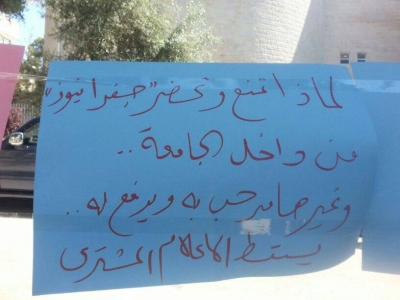 لماذا تمنع وتحضر "جفرا نيوز"
من داخل الجامعة ..
وغيرها مرحب به ويدفع له ..
يسقط الاعلام المشترى